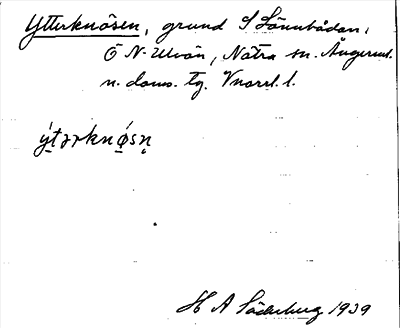 Ytterknösen, grund S Lönnbådan,
Ö N. Ulvön, Nätra sn. Ångerml.
n. doms. tg. Vnorrl. l.
ýtərknǿsn̥
H A Söderberg 1939